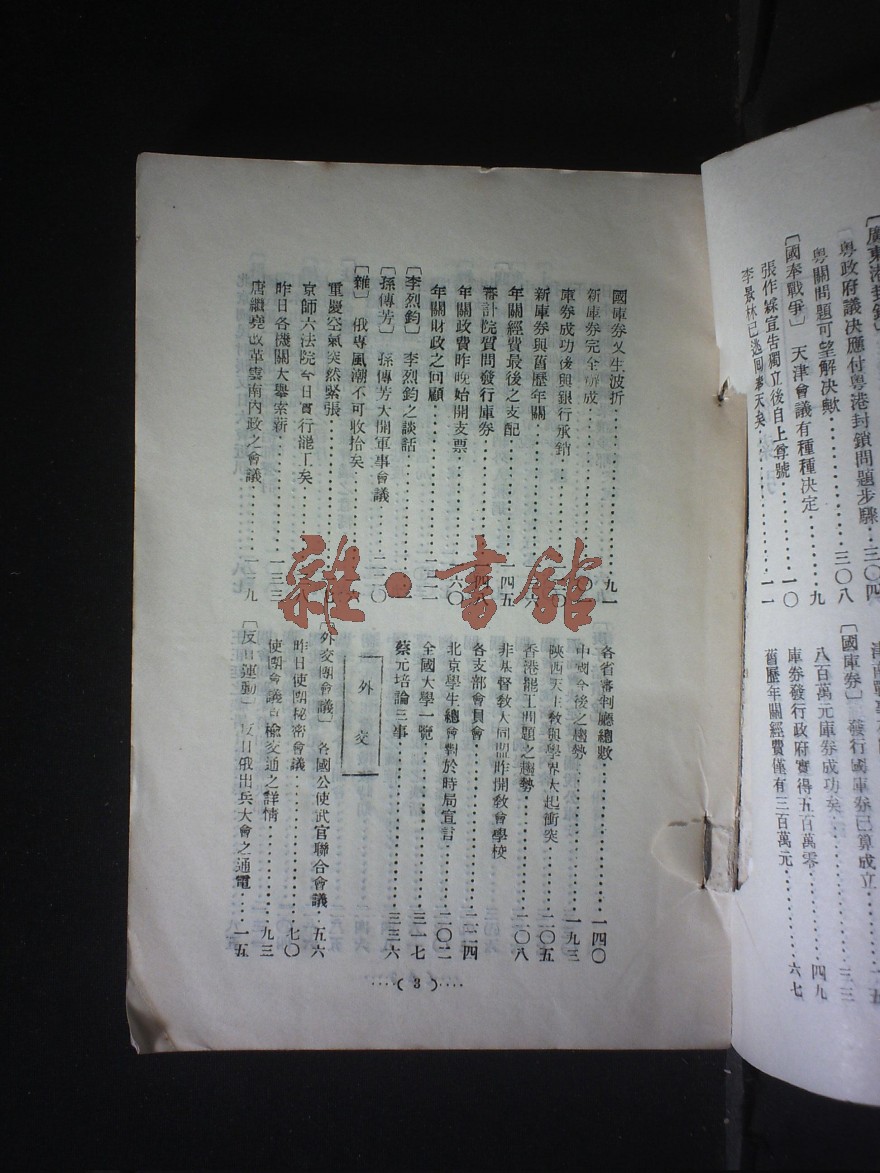 〔廣東港封鎖〕
粤政府議决應付粤港封鎖問題步驟……三〇四
粤關問題可望解决歟……三〇八
〔國奉戰爭〕　天津會議有種種决定……九
張作霖宣告獨立後自上尊號……一〇
李景林已逃回奉天矣……一一
〔國庫券〕　發行國庫券已算成立……三三
八百萬元庫券成功矣……四九
庫券發行政府實得五百萬零……六七
舊歷年關經費僅有三百萬元
國庫券又生波折……九一
新庫券完全辦成
庫券成功後與銀行承銷
新庫券與舊歷年關
年關經費最後之支配……一四五
審計院質問發行庫券
年關政費昨晚始開支票……一六〇
年關財政之回顧
〔李烈鈞〕　李烈鈞之談話
〔孫傳芳〕　孫傳芳大開軍事會議
〔雜〕　俄專風潮不可收拾矣
重慶空氣突然緊張
京師六法院今日實行罷工矣
昨日各機關大舉索薪……一三三
唐繼堯改革雲南內政之會議
各省審判廳總數……一四〇
中國今後之趨勢……一九三
陝西天主敎與學界大起衝突……二〇五
香港罷工問題之趨勢……二〇八
非基督敎大同盟昨開敎會學校
各支部會員會……二二四
北京學生總會對於時局宣言……二〇二
全國大學一覽……三一七
蔡元培論三事……三三六
外　交
〔外交團會議〕　各國公使武官聯合會議……五六
昨日使團秘密會議……七〇
使團會議京榆交通之詳情……九三
〔反日運動〕　反日俄出兵大會之通電……一五
……( 3 )……
雜·書館